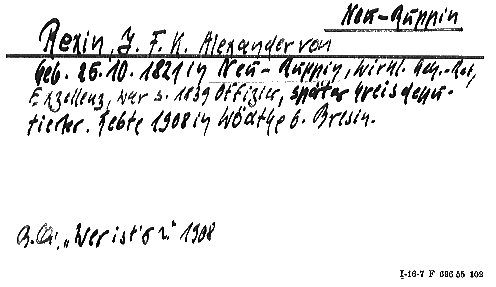 Neu-Ruppin
Rexin, J. F. K. Alexander von
Geb. 26.10.1821 in Neu-Ruppin, Wirkl. Geh.-Rat,
Exzellenz, war s. 1839 Offizier, später Kreisdepu-
tierter. Lebte 1908 in Wödtke b. Bresin.
"Wer ist's?" 1908
I-16-7 F 686 55 102